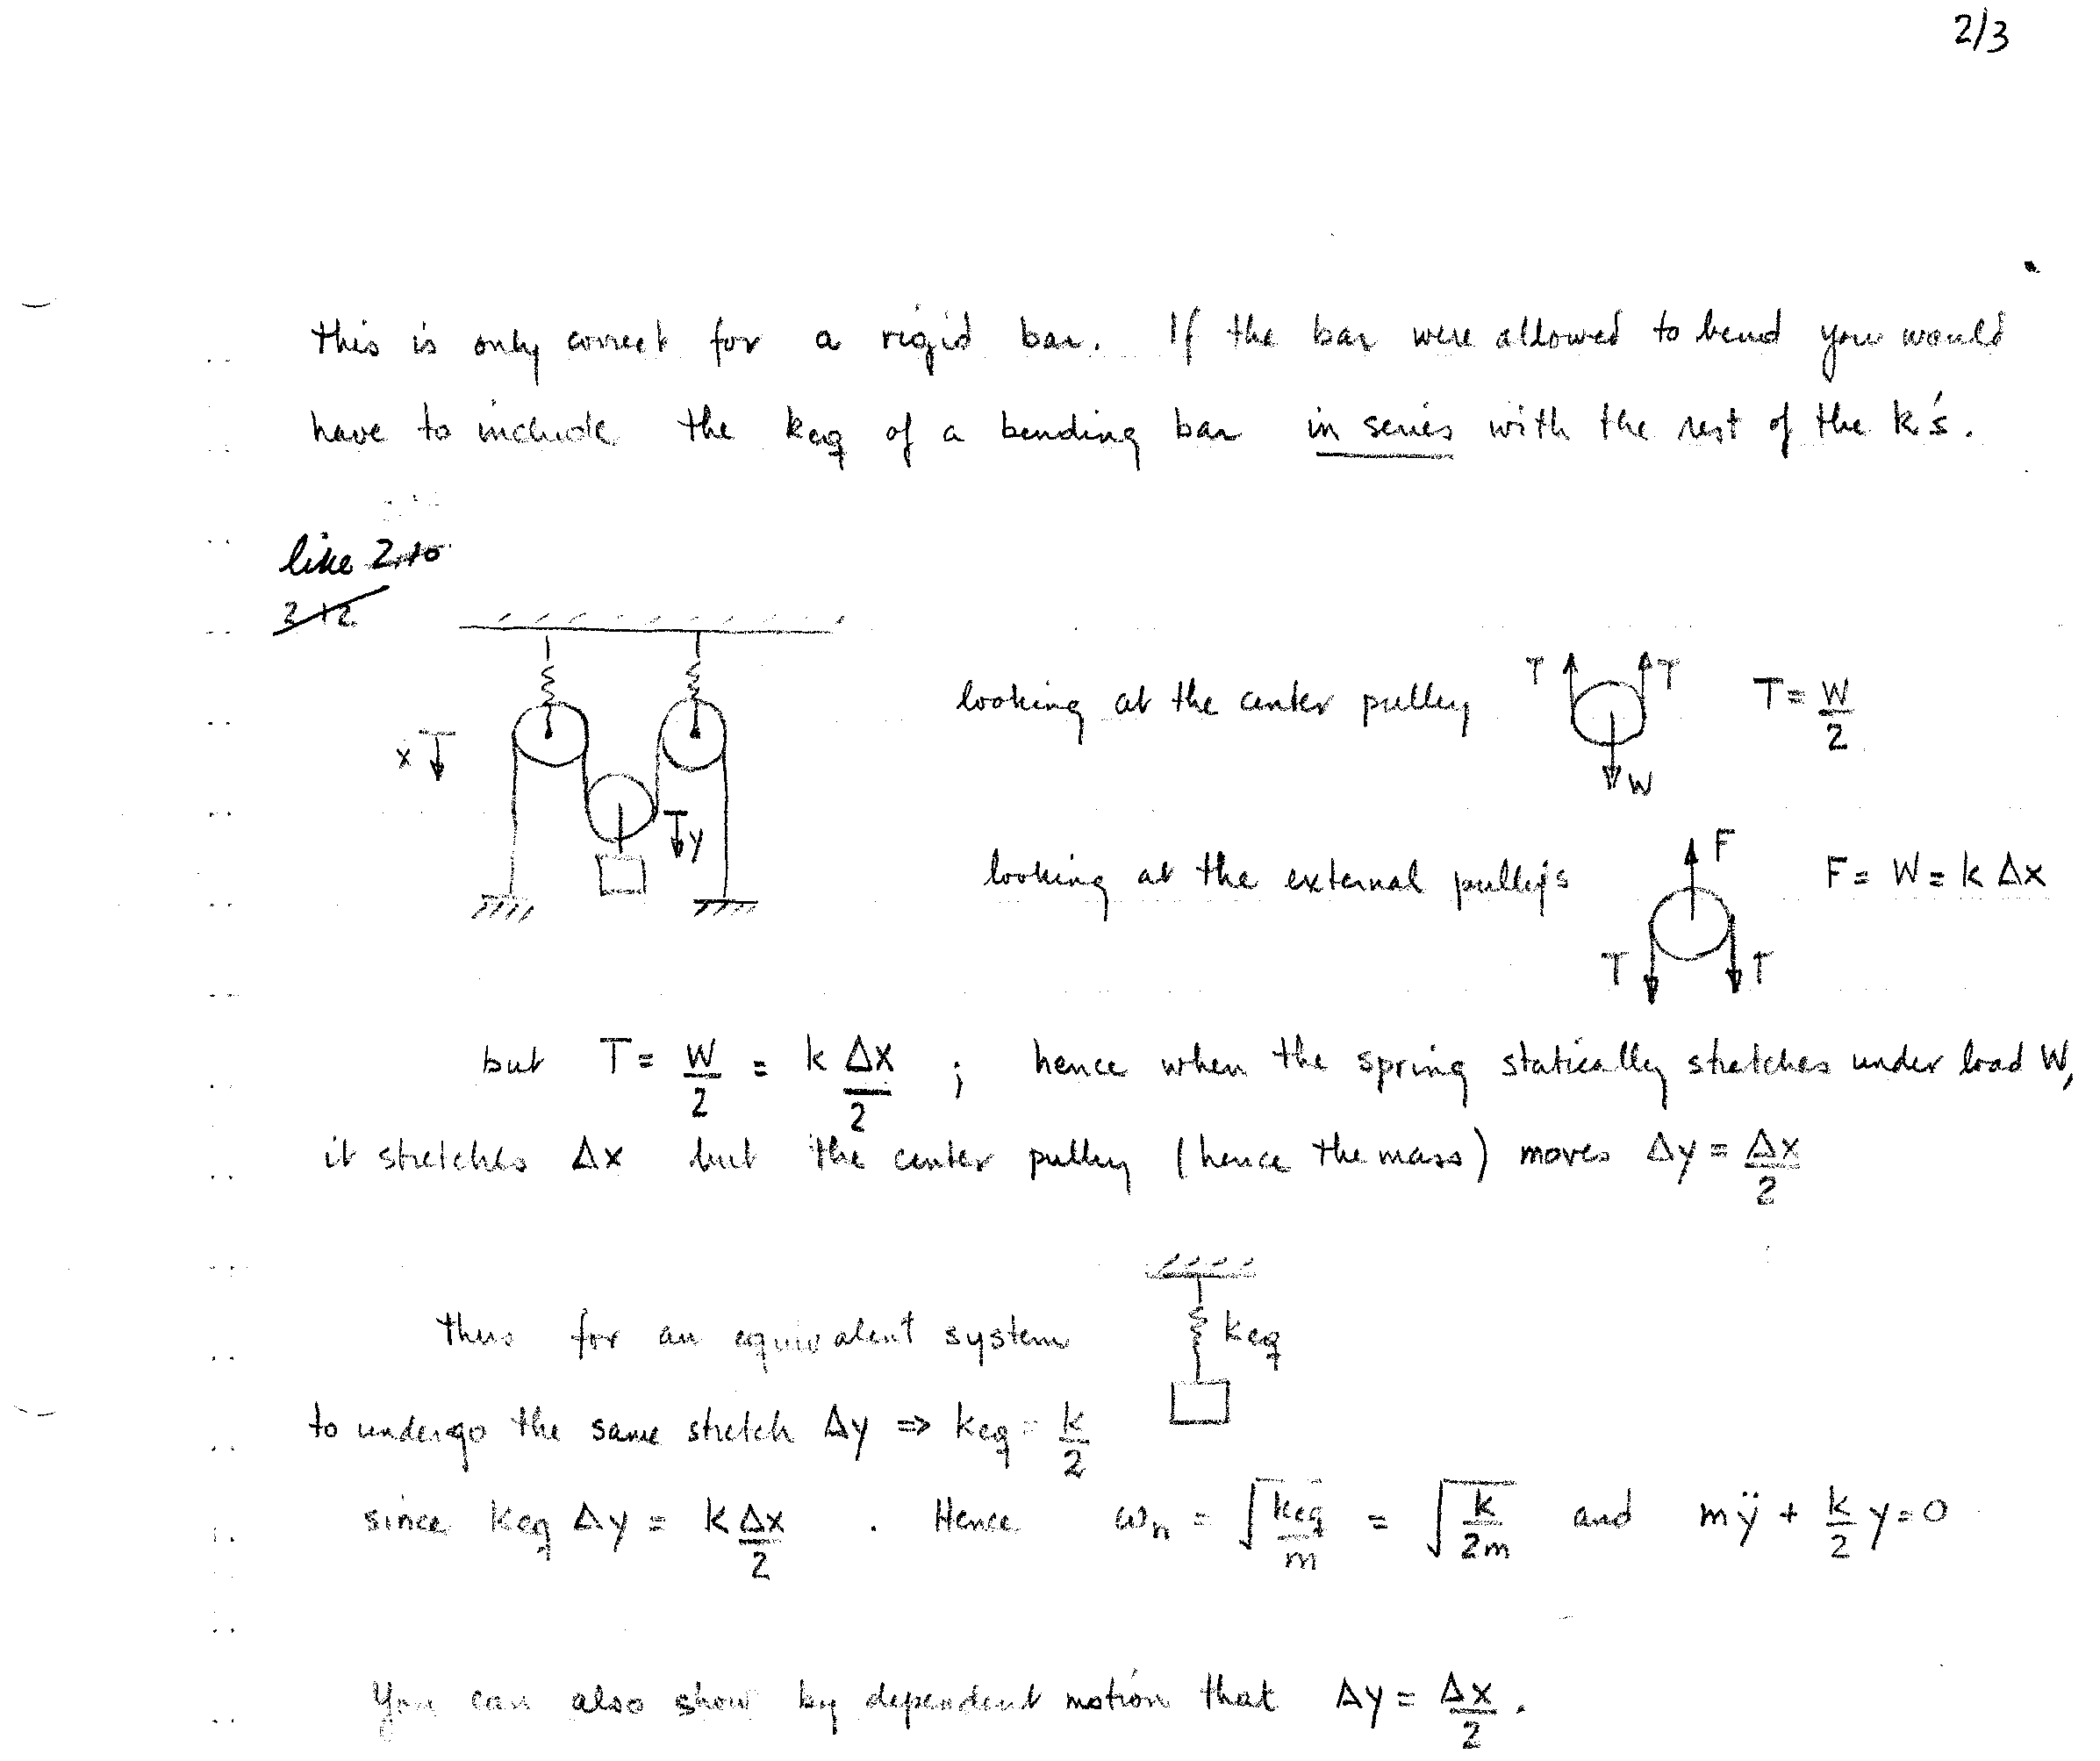 2/3
this is only correct for a rigid bar. If the bar were allowed to bend you would
have to include the keq of a bending bar in series with the rest of the k's.
like 2.10
2.12
x
y
looking at the center pulley T T W T = W/2
looking at the external pulleys F T T F = W = k Δx
but T = W/2 = k Δx/2 ; hence when the spring statically stretches under load W,
it stretches Δx but the center pulley (hence the mass) moves Δy = Δx/2
thus for an equivalent system keq
to undergo the same stretch Δy ⇒ keq = k/2
since keq Δy = k Δx/2 . Hence ωn = √(keq/m) = √(k/2m) and mÿ + k/2 y = 0
You can also show by dependent motion that Δy = Δx/2 .